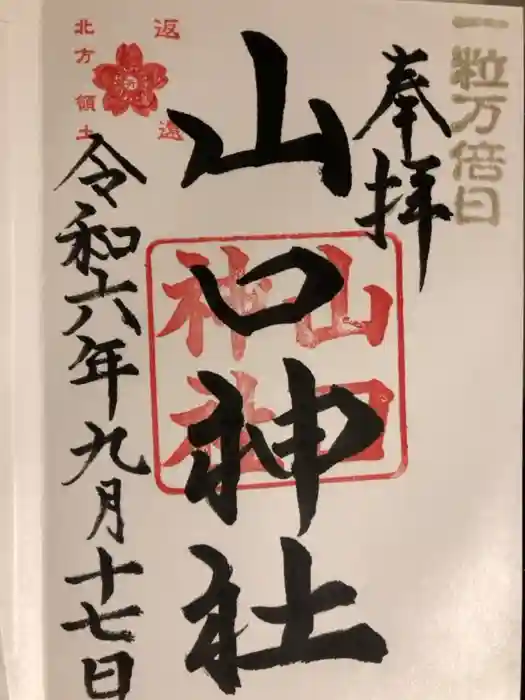 一粒万倍日
奉拝
山口神社
山口
神社
返還
北方領土
令和六年九月十七日